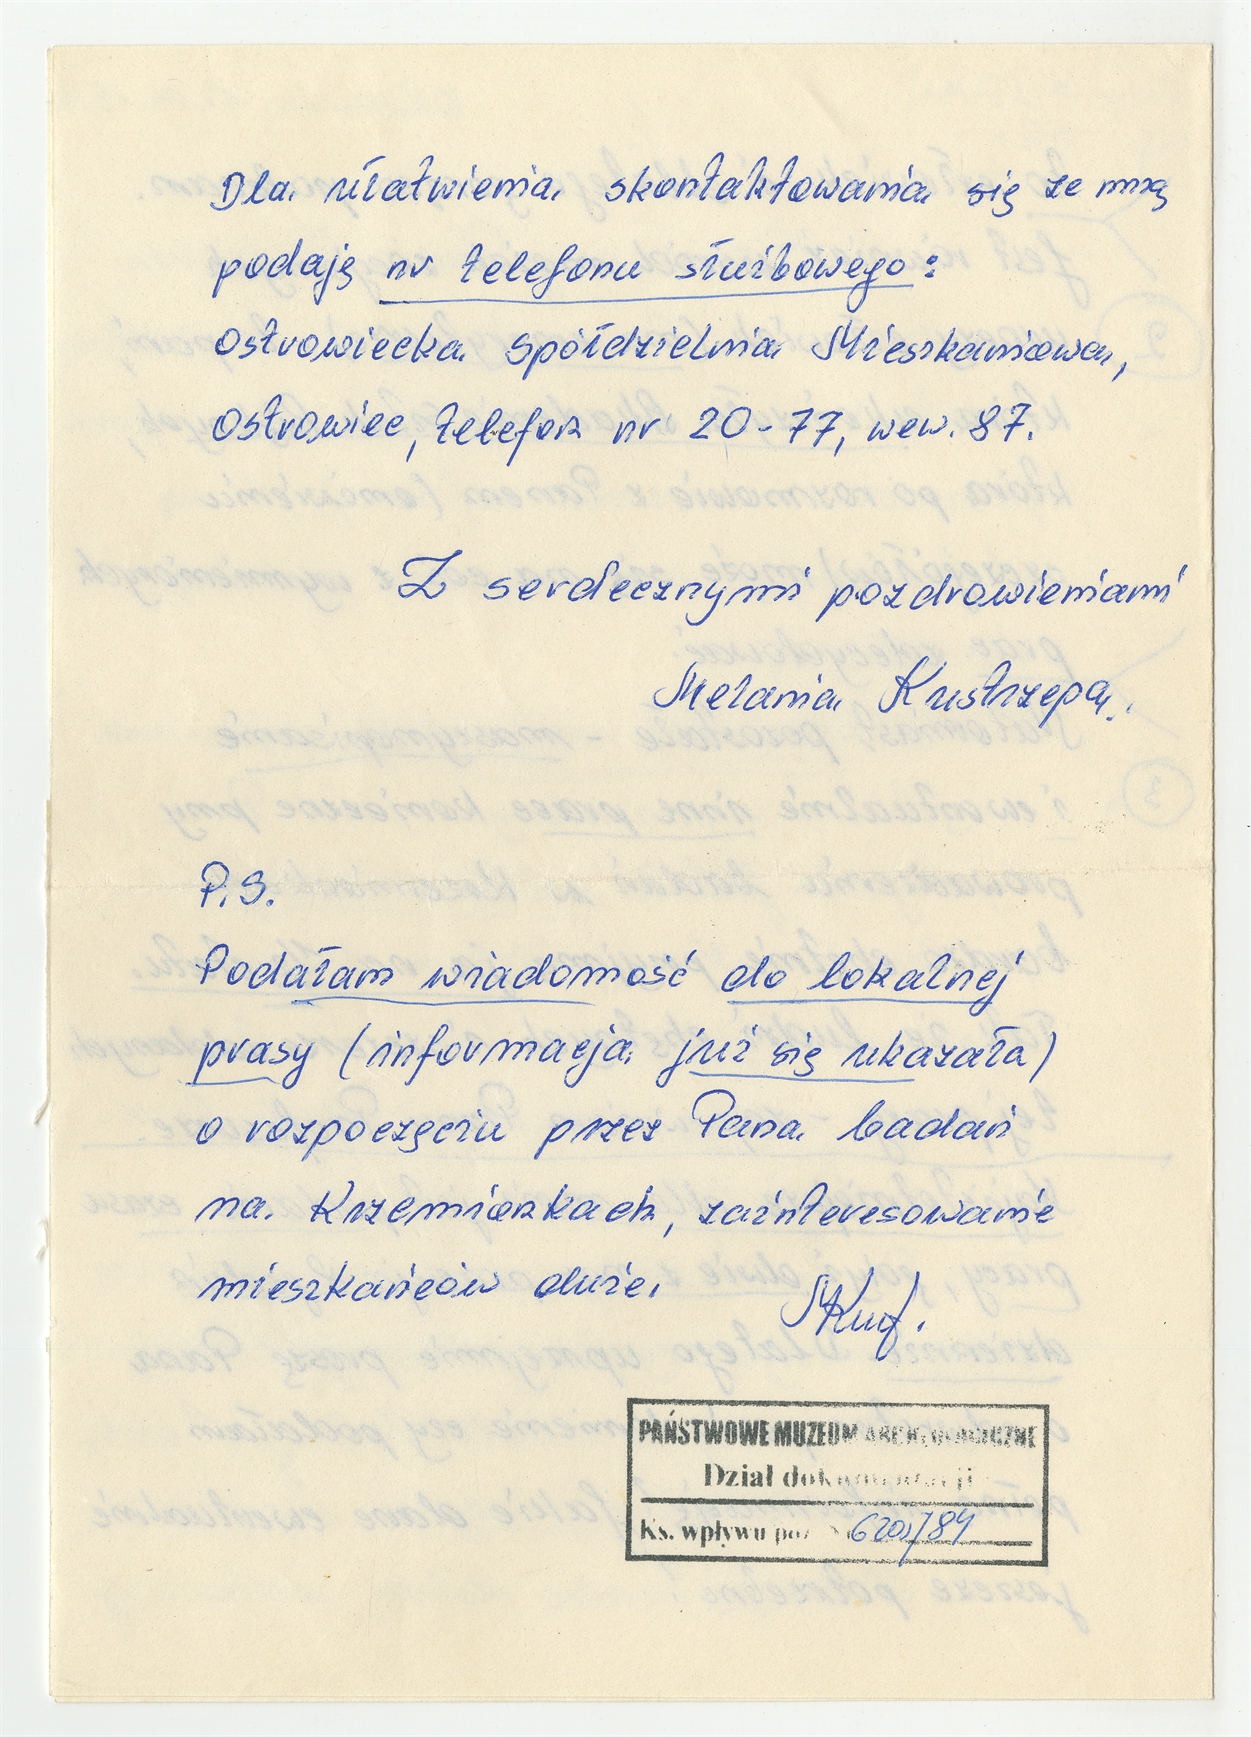 Dla ułatwienia skontaktowania się ze mną
podaję nr telefonu służbowego:
Ostrowiecka Spółdzielnia Mieszkaniowa,
Ostrowiec, telefon nr 20-77, wew. 87.
Z serdecznymi pozdrowieniami
Melania Kustrzepa.
P.S.
Podałam wiadomość do lokalnej
prasy (informacja już się ukazała)
o rozpoczęciu przez Pana badań
na Krzemionkach, zainteresowanie
mieszkańców duże.
PAŃSTWOWE MUZEUM ARCHEOLOGICZNE
Dział dokumentacji
Ks. wpływu poz. 6201/84